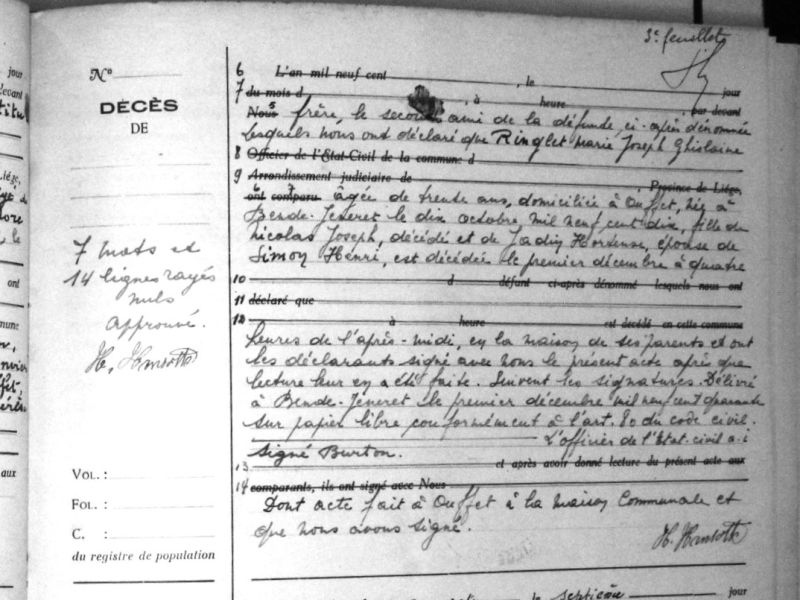 3e feuillet
No
DÉCÈS
DE
6 L'an mil neuf cent , le jour
7 du mois d , à heure , par devant
Nous frère, le second ami de la défunte, ci-après dénommée
lesquels nous ont déclaré que Ringlet Marie Joseph Ghislaine
8 Officier de l'Etat-Civil de la commune d
9 Arrondissement judiciaire de , Province de Liége,
ont comparu âgée de trente ans, domiciliée à Ouffet, née à
Bende-Jeneret le dix octobre mil neuf cent dix, fille de
Nicolas Joseph, décédé et de Jadin Hortense, épouse de
Simon Henri, est décédée le premier décembre à quatre
10 d défunt ci-après dénommé lesquels nous ont
11 déclaré que
12 à heure est décédé en cette commune
heures de l'après-midi, en la maison de ses parents et ont
les déclarants signé avec nous le présent acte après que
lecture leur en a été faite. Suivent les signatures. Délivré
à Bende-Jeneret le premier décembre mil neuf cent quarante
sur papier libre conformément à l'art. 80 du code civil.
L'officier de l'Etat-civil a.i
signé Burton.
13 et après avoir donné lecture du présent acte aux
14 comparants, ils ont signé avec Nous
Dont acte fait à Ouffet à la maison Communale et
que nous avons signé.
7 mots et
14 lignes rayés
nuls
approuvé.
VOL. :
FOL. :
C. :
du registre de population
le septième jour